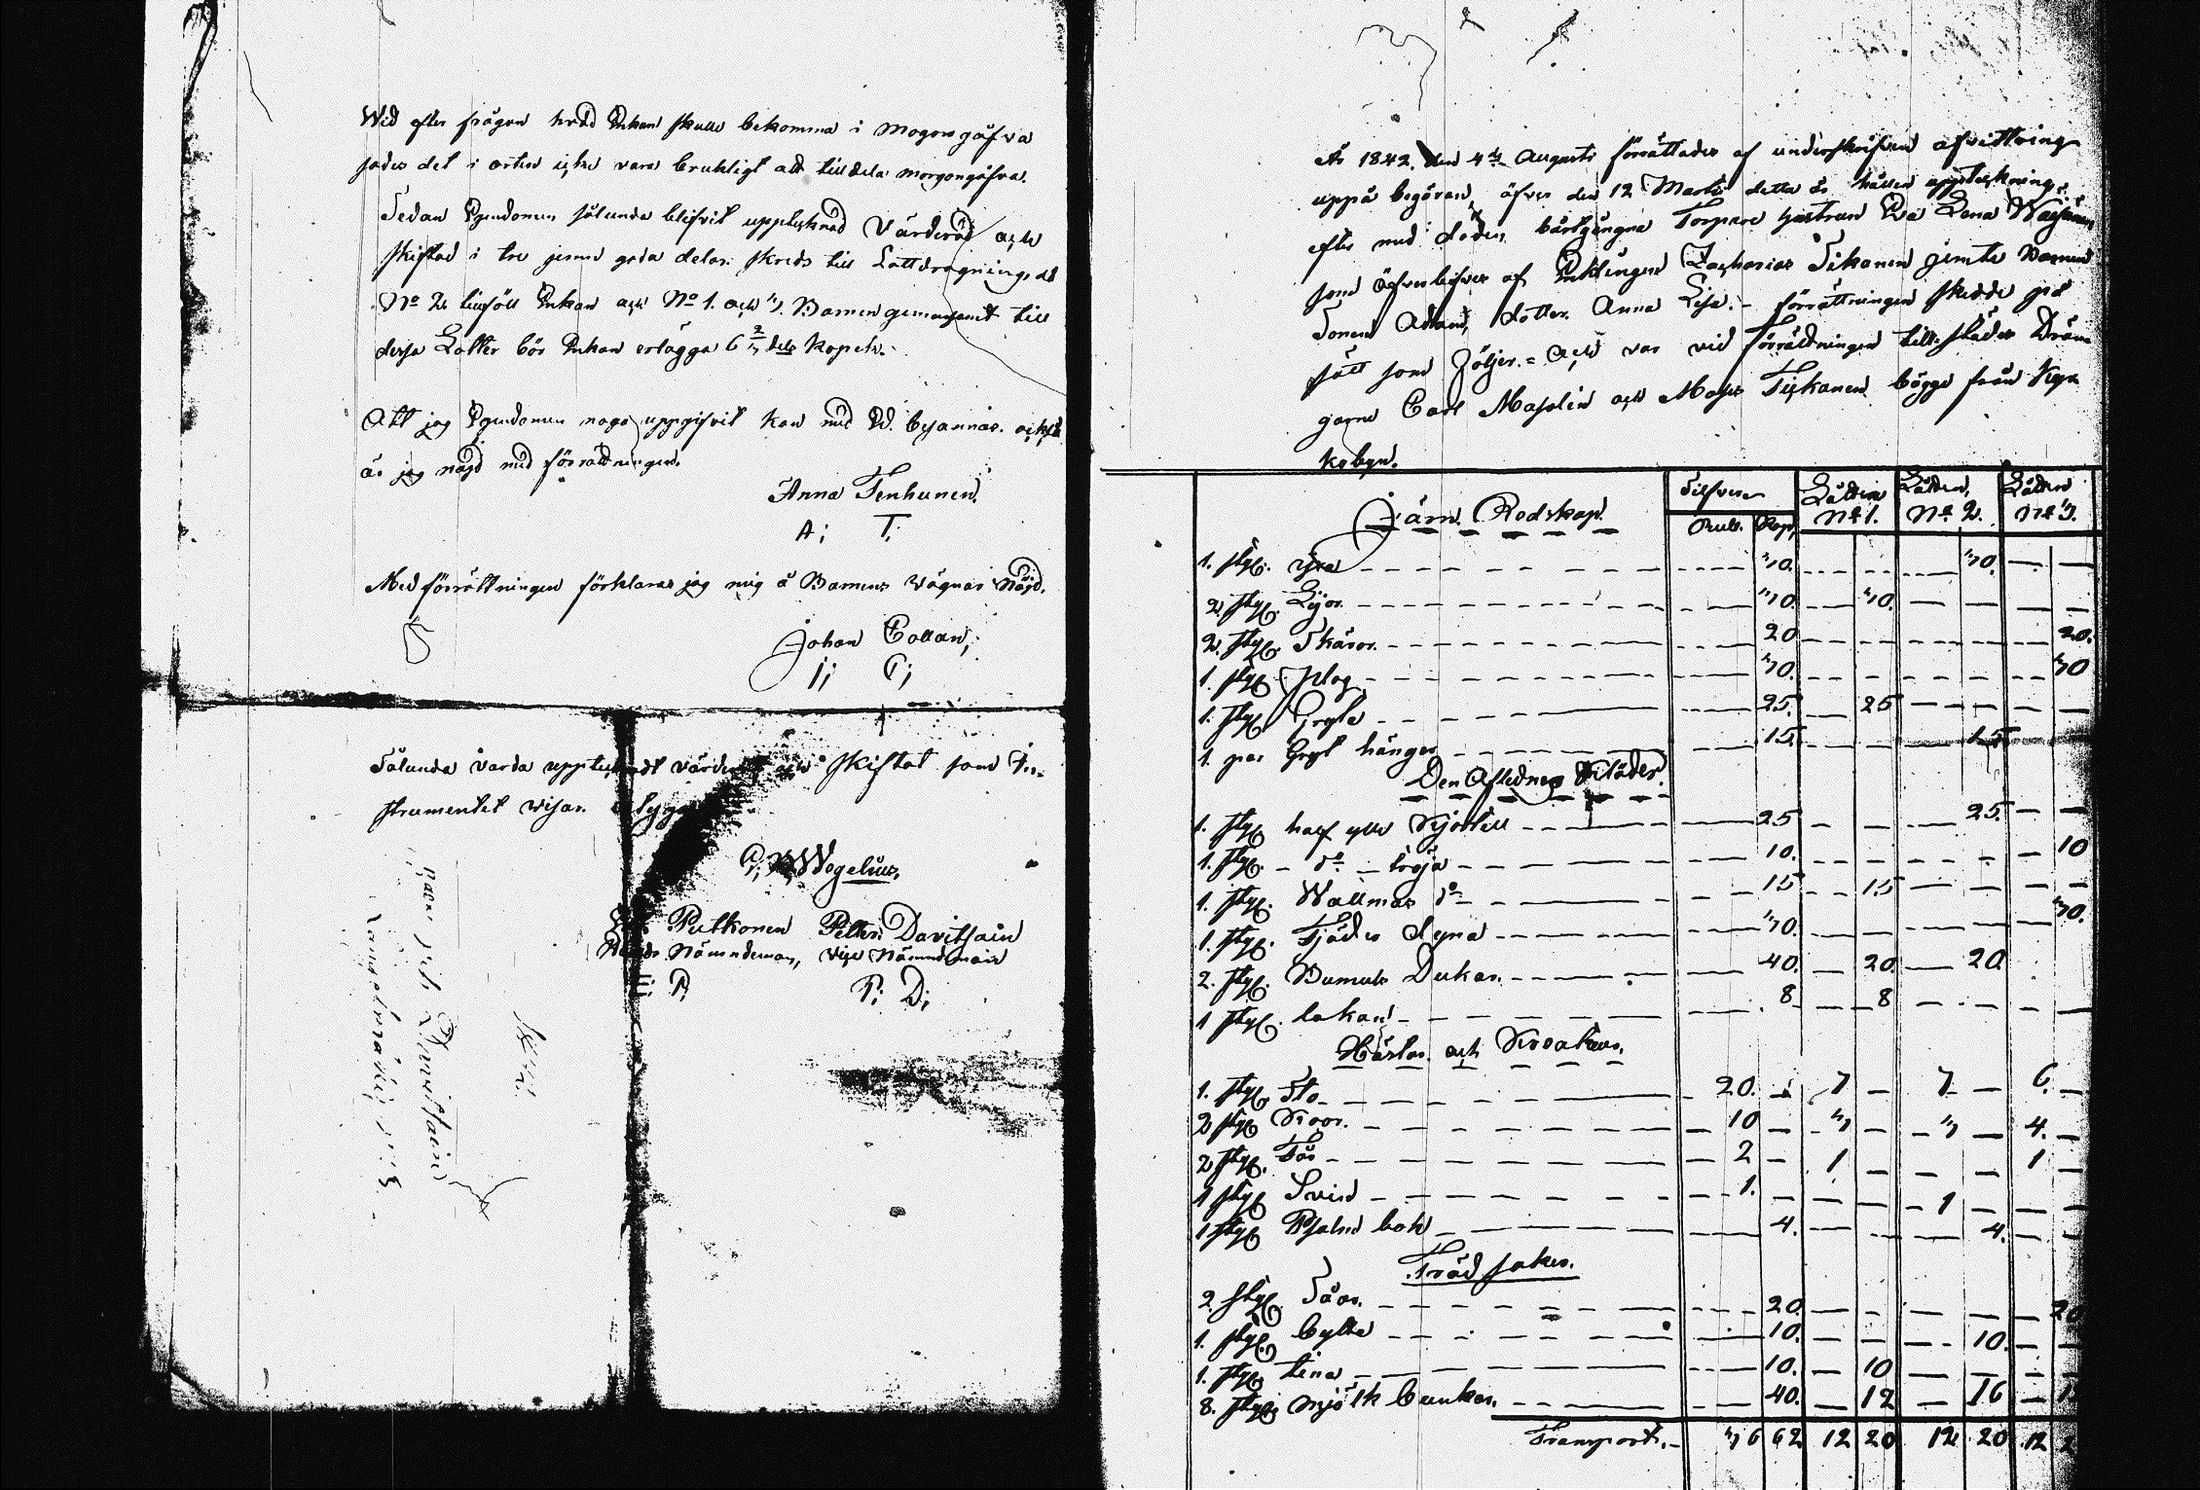 Wid efter frågan hvad Enkan skulle bekomma i mogongåfva
sades det i orten icke vara brukligt att tilldela morgongåfva.
Sedan Egendomen sålunda blifvit upptecknad Värderad och
skiftad i tre jemn goda delar skreds till Lottdragning, då
No 2 tillföll Enkan och No 1. och 3. Barnen gemensamt till
dessa Lotter bör Enkan erlägga 6 2/3 dels Kopek.
Att jag Egendomen noga uppgifvit kan med Ed. besannas. också
är jag nöjd med förrättningen.
Anna Tenhunen.
A; T;
Med förrättningen förklarar jag mig å Barnens Wägnar Nöjd.
Johan Collan;
J; C;
Sålunda varda upptecknadt värderat och Skiftat som In-
strumentet visar.
Wogelius,
Putkonen Petter Davitsain
Nämndeman, Vice Nämndeman
P; P; D;
År 1842. den 4de Augusti förrättades af underskrifven afvittring
uppå begäran, öfver den 12 Martii detta år hållen uppteckning,
efter med döden bårtgångna Torpare hustrun Eva Lena
som öfverlefves af Enklingen Zacharias Tikanen jemte Barnen
Sonen Adam, dotter Anna Lisa. förrättningen skedde på
sätt som följer. = Och var vid Förrättningen till städes Dräng
garne Carl Masalin och Moses Tiikanen bägge från
kobyn.
Järn Redskap. Silfver Lotten Lotten Lotten
Rub. Kop. No 1. No 2. No 3.
1. styc. Yxa 30. 30.
2 styc. Lijor. 30. 30.
2. styc. Skäror. 20 20.
1. styc. Plog 30. 30
1. styc. Gryta 25. 25
1. par Gryt hänger 15. 15
Den Aflednes Kläder.
1. styc half ylle Kjortell 25 25.
1. styc. do tröja 10. 10
1. styc. Wallmar do 15 15
1. styc. Fjäder dyna 30. 30.
2. styc. Bumuls Dukar. 40. 20 20
1 styc. lakan 8 8
Hästar och Kreatur.
1. styc. Sto 20. 7 7 6.
2 styc Koor. 10 3 3 4.
2 styc. Får 2 1 1
1 styc Svin 1. 1
1 styc Psalm bok 4. 4.
Träd saker.
2 styc. Såar. 20. 20
1. styc. bytta 10. 10.
1. styc tina 10. 10
8. styc mjölk bunkar. 40. 12 16
Transport. 36 62 12 20 12 20 12